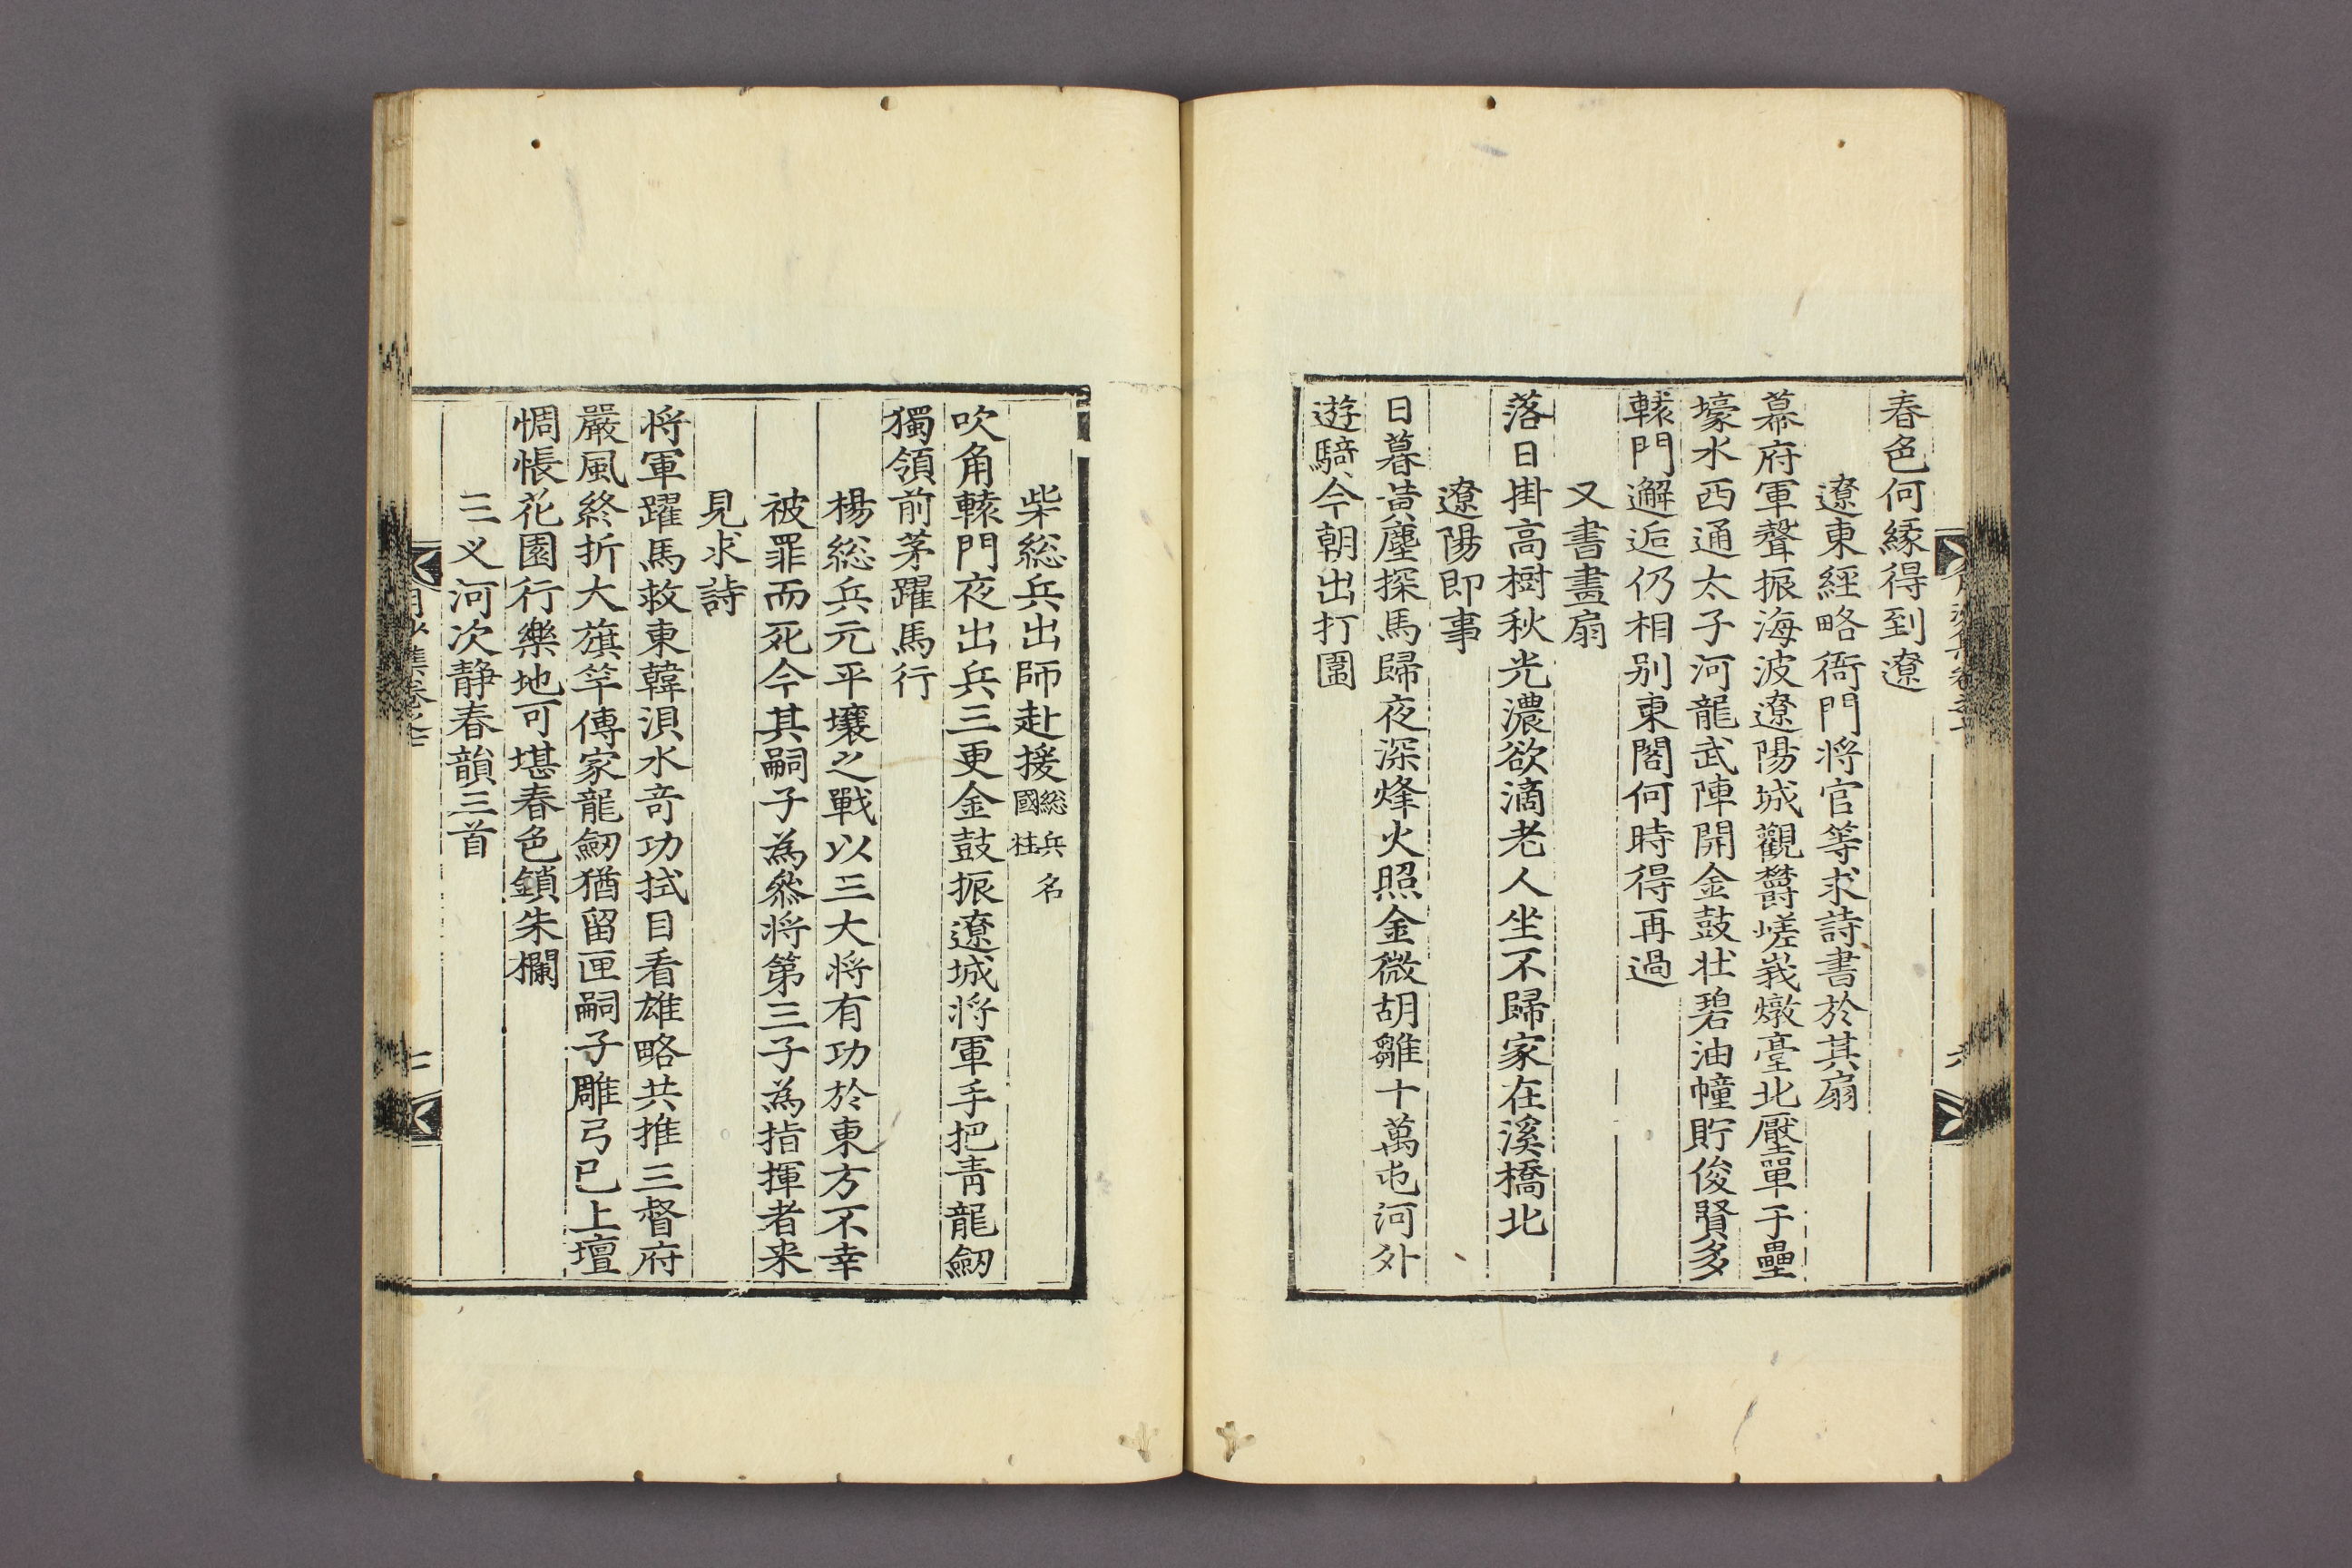 春色何緣得到遼
遼東經略衙門将官等求詩書於其扇
幕府軍聲振海波遼陽城觀欝嵯峩燉臺北壓單于壘
壕水西通太子河龍武陣開金鼓壯碧油幢貯俊賢多
轅門邂逅仍相别東閣何時得再過
又書畫扇
落日掛高樹秋光濃欲滴老人坐不歸家在溪橋北
遼陽即事
日暮黃塵探馬歸夜深烽火照金微胡雛十萬屯河外
遊騎今朝出打圍
柴総兵出師赴援総兵名國柱
吹角轅門夜出兵三更金鼓振遼城将軍手把靑龍劒
獨領前茅躍馬行
楊総兵元平壤之戰以三大将有功於東方不幸
被罪而死今其嗣子為叅将第三子為指揮者来
見求詩
将軍躍馬救東韓浿水竒功拭目看雄略共推三督府
嚴風終折大旗竿傳家龍劒猶留匣嗣子雕弓已上壇
惆悵花園行樂地可堪春色鎖朱欄
三义河次靜春韻三首